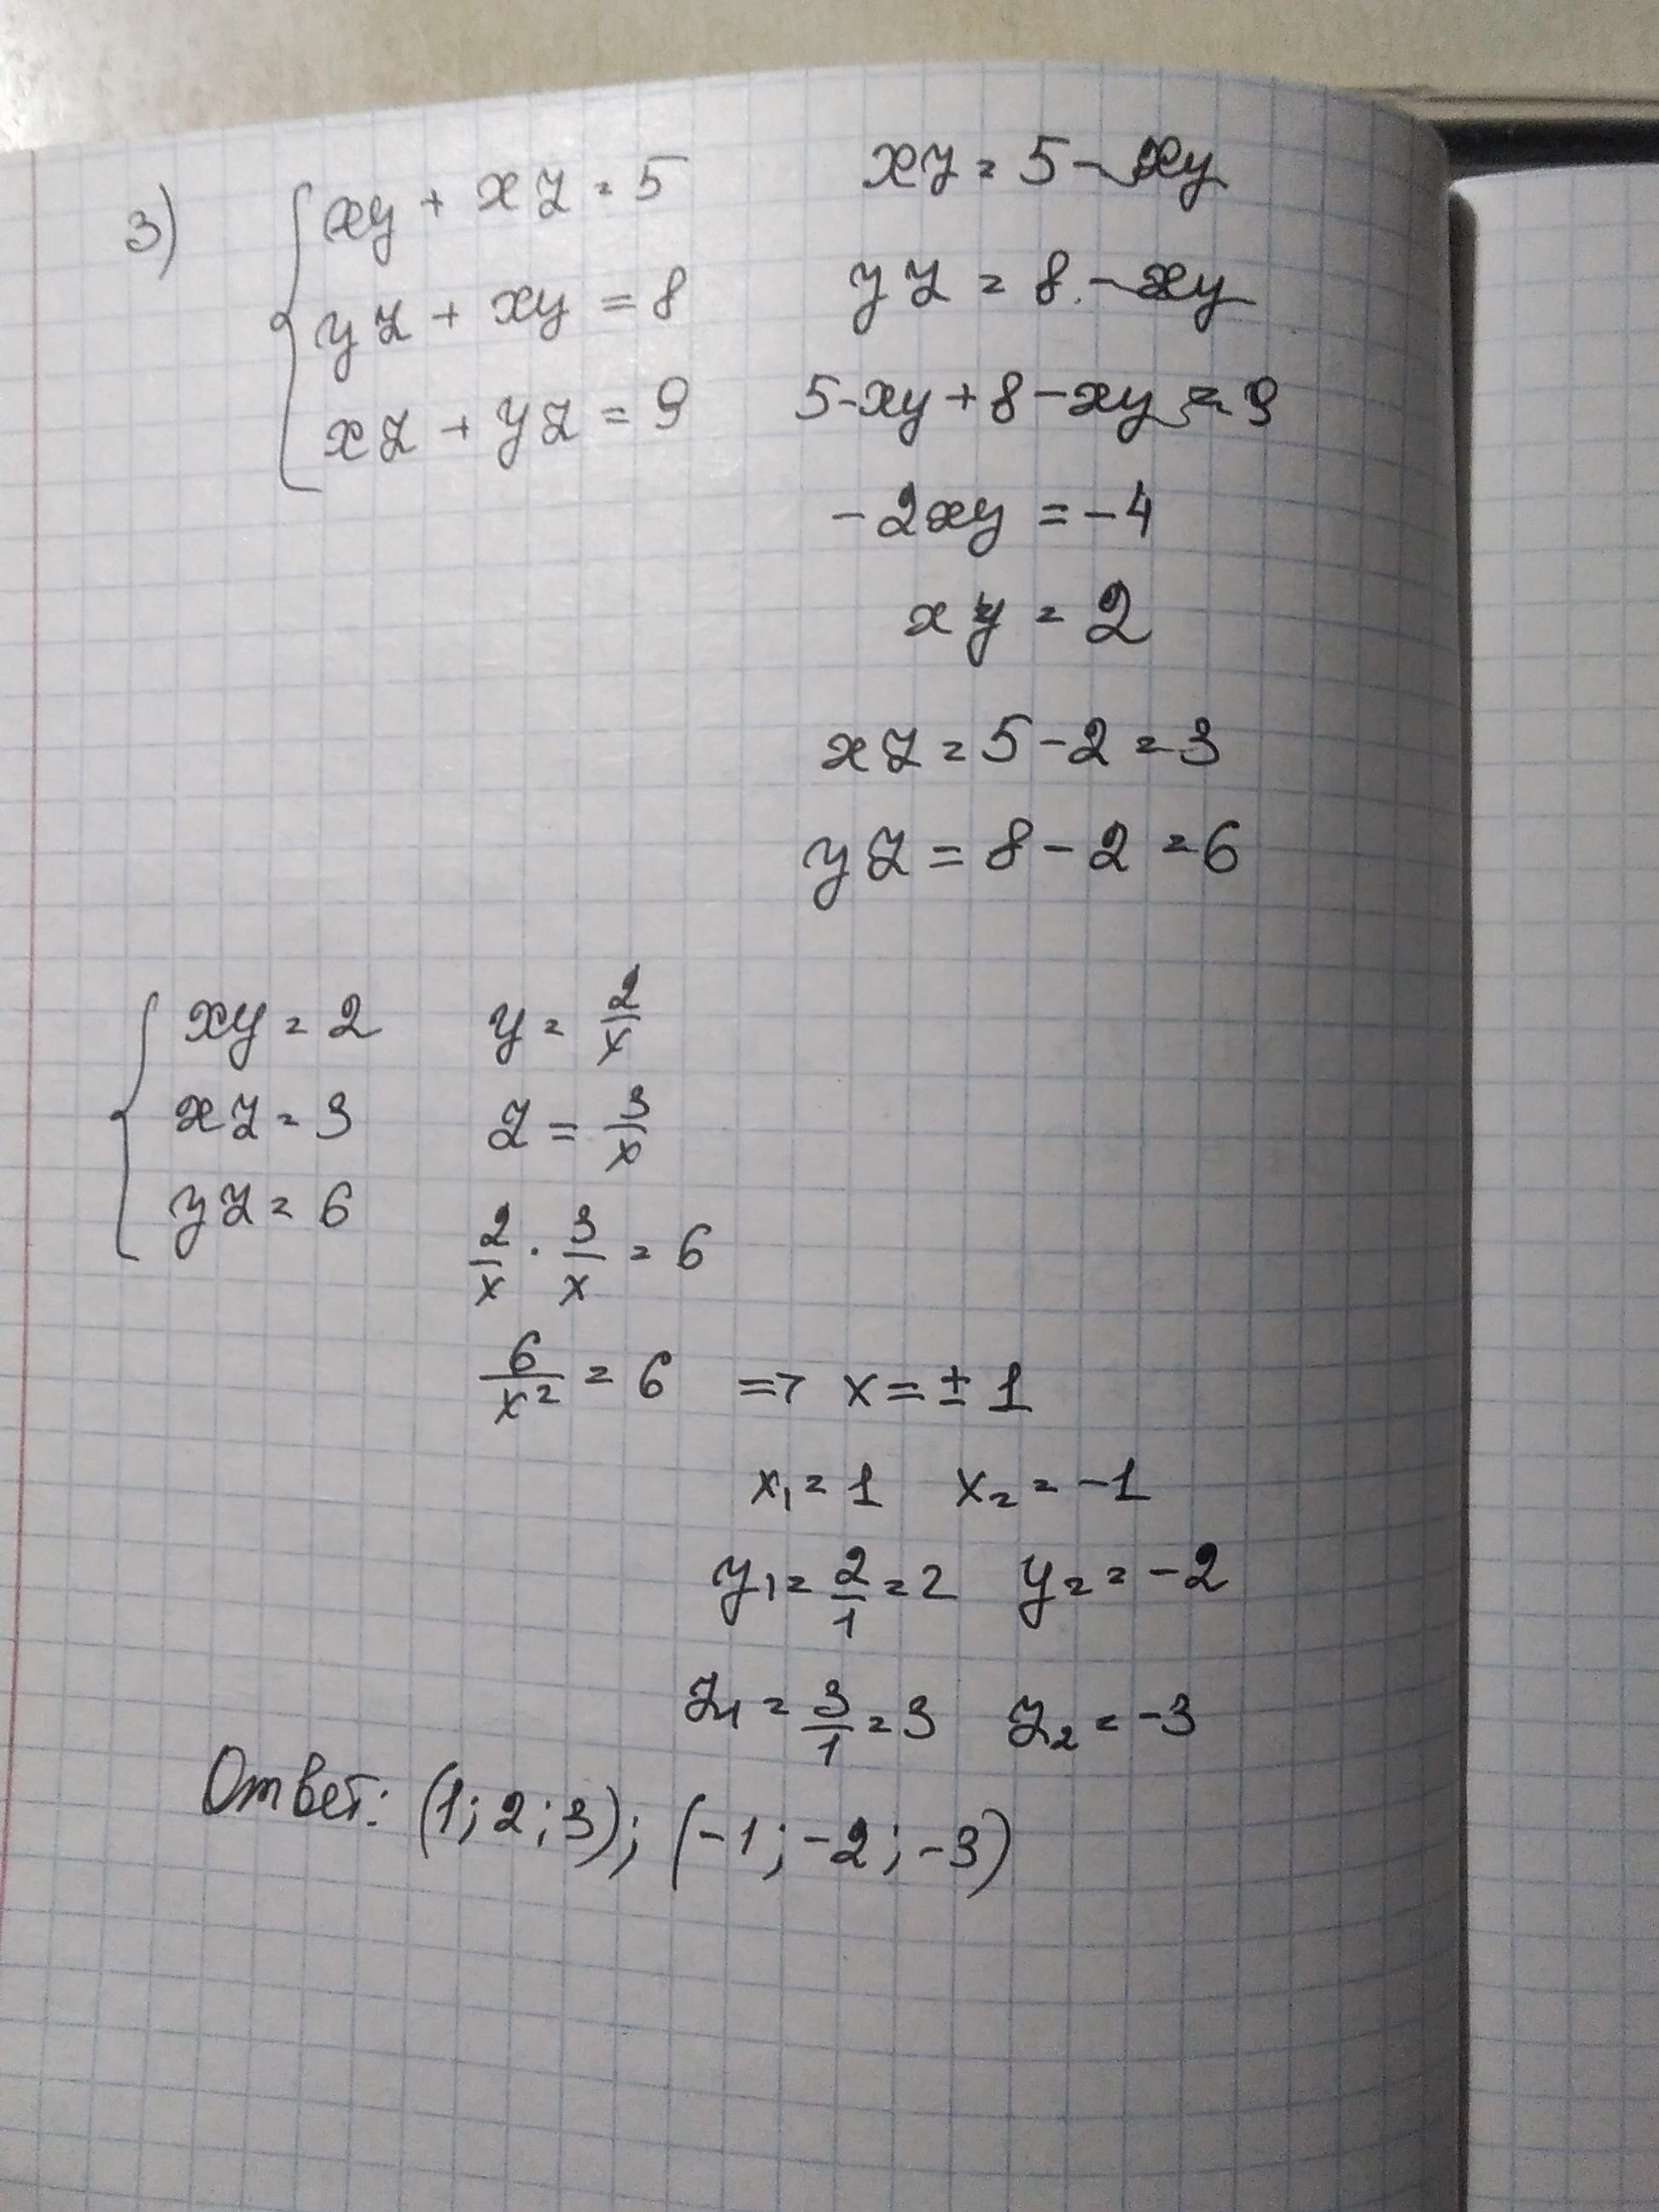 3) xy + xz = 5
yz + xy = 8
xz + yz = 9
xz = 5 - xy
yz = 8 - xy
5 - xy + 8 - xy = 9
-2xy = -4
xy = 2
xz = 5 - 2 = 3
yz = 8 - 2 = 6
xy = 2
xz = 3
yz = 6
y = 2/x
z = 3/x
2/x · 3/x = 6
6/x² = 6 => x = ± 1
x₁ = 1 x₂ = -1
y₁ = 2/1 = 2 y₂ = -2
z₁ = 3/1 = 3 z₂ = -3
Ответ: (1; 2; 3); (-1; -2; -3)